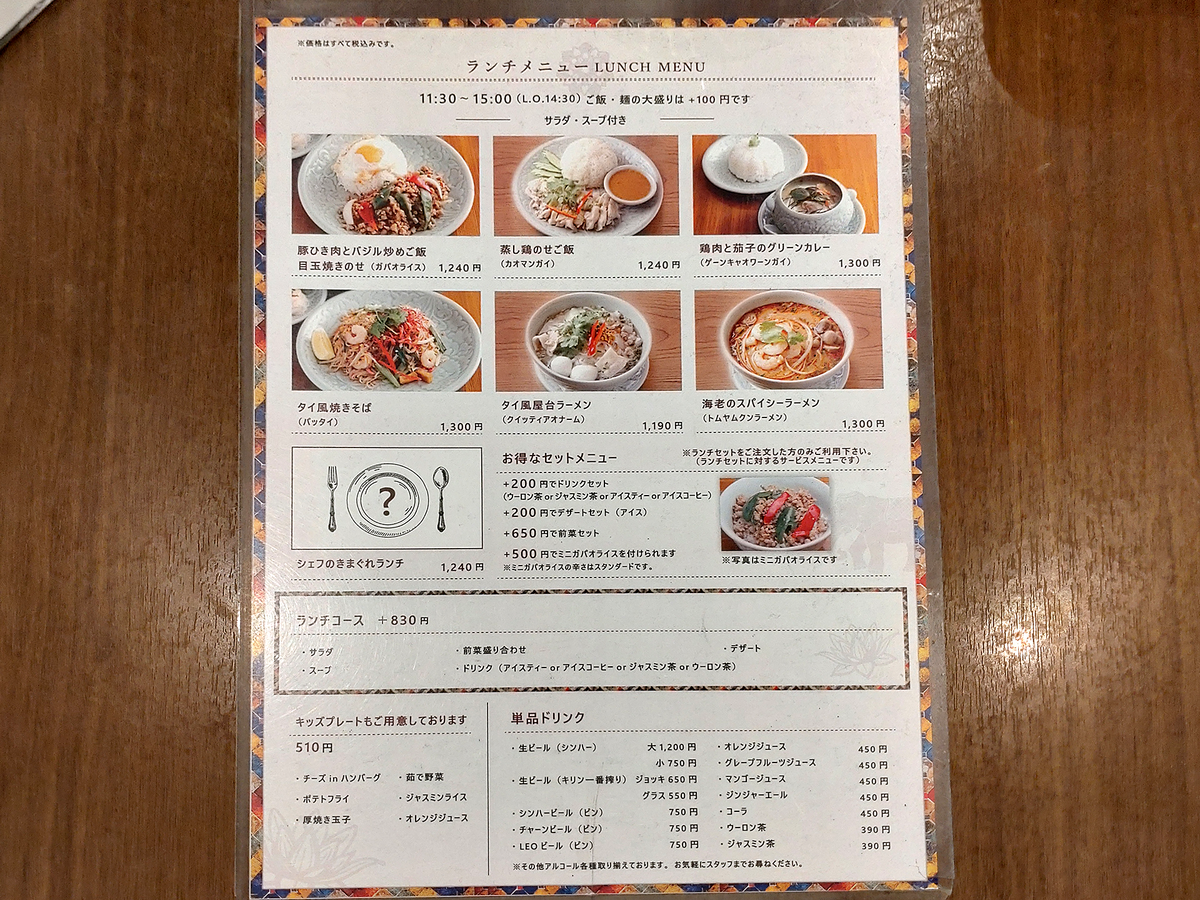 ※価格はすべて税込みです。
ランチメニュー LUNCH MENU
11:30～15:00（L.O.14:30）ご飯・麺の大盛りは +100 円です
サラダ・スープ付き
豚ひき肉とバジル炒めご飯
目玉焼きのせ（ガパオライス） 1,240 円
蒸し鶏のせご飯
（カオマンガイ） 1,240 円
鶏肉と茄子のグリーンカレー
（ゲーンキャオワーンガイ） 1,300 円
タイ風焼きそば
（パッタイ） 1,300 円
タイ風屋台ラーメン
（クイッティアオナーム） 1,190 円
海老のスパイシーラーメン
（トムヤムクンラーメン） 1,300 円
?
シェフのきまぐれランチ 1,240 円
お得なセットメニュー
※ランチセットをご注文した方のみご利用下さい。
（ランチセットに対するサービスメニューです）
+200 円でドリンクセット
（ウーロン茶 or ジャスミン茶 or アイスティー or アイスコーヒー）
+200 円でデザートセット（アイス）
+650 円で前菜セット
+500 円でミニガパオライスを付けられます
※ミニガパオライスの辛さはスタンダードです。
※写真はミニガパオライスです
ランチコース ＋830 円
・サラダ ・前菜盛り合わせ ・デザート
・スープ ・ドリンク（アイスティー or アイスコーヒー or ジャスミン茶 or ウーロン茶）
キッズプレートもご用意しております
510 円
・チーズ in ハンバーグ ・茹で野菜
・ポテトフライ ・ジャスミンライス
・厚焼き玉子 ・オレンジジュース
単品ドリンク
・生ビール（シンハー） 大 1,200 円
小 750 円
・生ビール（キリン一番搾り） ジョッキ 650 円
グラス 550 円
・シンハービール（ビン） 750 円
・チャーンビール（ビン） 750 円
・LEO ビール（ビン） 750 円
・オレンジジュース 450 円
・グレープフルーツジュース 450 円
・マンゴージュース 450 円
・ジンジャーエール 450 円
・コーラ 450 円
・ウーロン茶 390 円
・ジャスミン茶 390 円
※その他アルコール各種取り揃えております。 お気軽にスタッフまでお尋ねください。